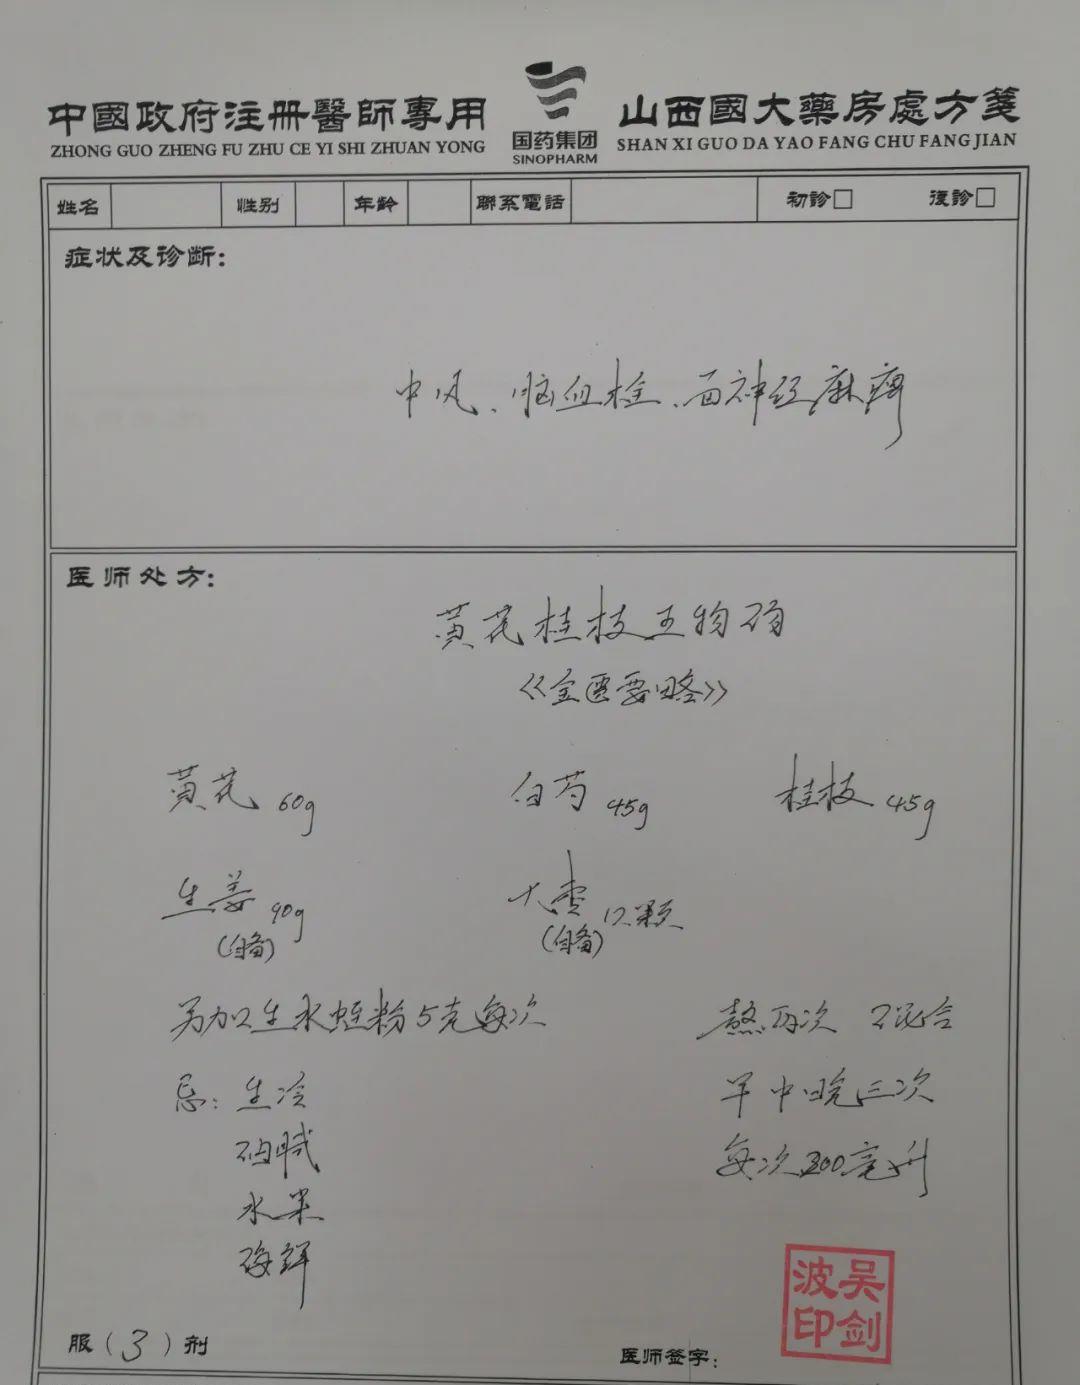 中國政府注册醫師專用
ZHONG GUO ZHENG FU ZHU CE YI SHI ZHUAN YONG
国药集团
SINOPHARM
山西國大藥房處方箋
SHAN XI GUO DA YAO FANG CHU FANG JIAN
姓名 性别 年龄 聯系電話 初診□ 復診□
症状及诊断:
中风、脑血栓、面神经麻痹
医师处方:
黄芪桂枝五物汤
《金匮要略》
黄芪 60g 白芍 45g 桂枝 45g
生姜 90g 大枣 12颗
(自备) (自备)
另加生水蛭粉5克每次 熬两次 混合
忌: 生冷 早中晚三次
水果 每次200毫升
海鲜
吴剑波印
服(3)剂
医师签字: